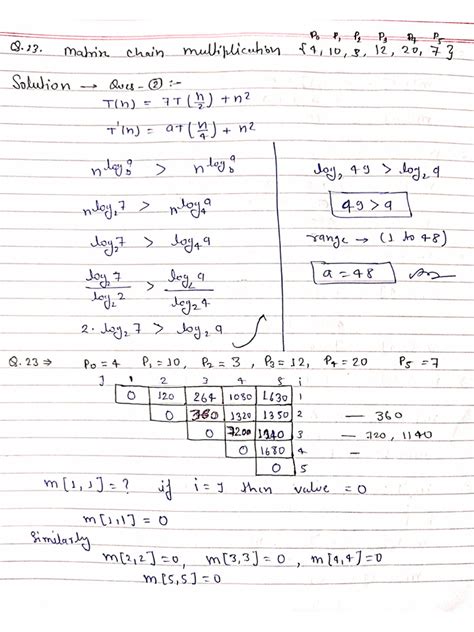 P₀ P₁ P₂ P₃ P₄ P₅
Q.23. matrix chain multiplication {4, 10, 3, 12, 20, 7}
Solution → Ques-② :-
T(n) = 7T(n/2) + n²
T'(n) = aT(n/4) + n²
n^log_b^a > n^log_b^a
n^log₂7 > n^log₄a
log₂7 > log₄a
log₂7/log₂2 > log₂a/log₂4
2·log₂7 > log₂a
log₂ 49 > log₂ a
49 > a
range → (1 to 48)
a = 48 Ans
Q.23 ⇒ P₀ = 4 P₁ = 10, P₂ = 3, P₃ = 12, P₄ = 20 P₅ = 7
J 1 2 3 4 5 i
0 120 264 1080 1630 1
0 360 1320 1350 2 — 360
0 7200 1140 3 — 720, 1140
0 1680 4 —
0 5
m[1,1] = ? if i = J then value = 0
m[1,1] = 0
Similarly
m[2,2] = 0, m[3,3] = 0, m[4,4] = 0
m[5,5] = 0